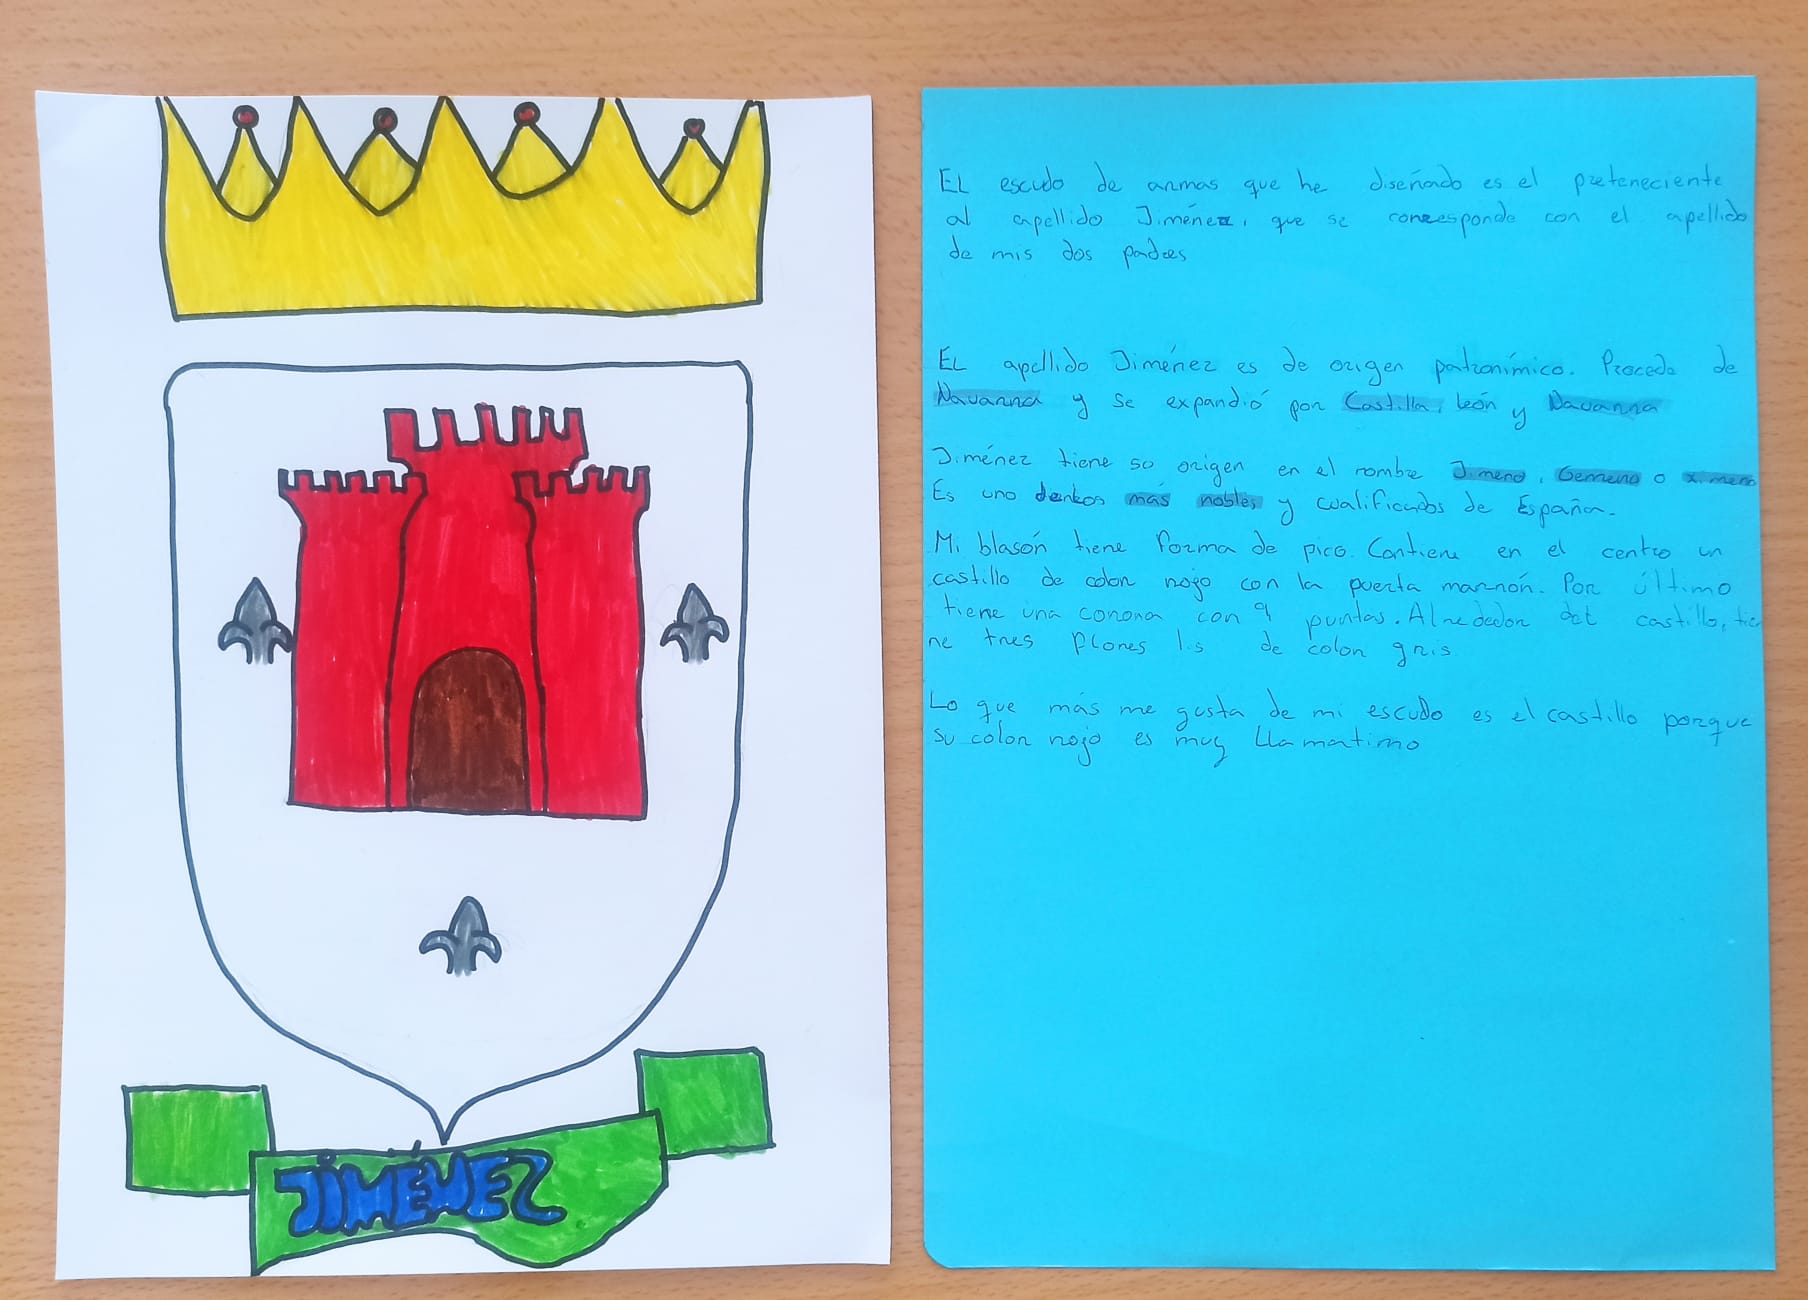 JIMÉNEZ
EL escudo de armas que he diseñado es el preteneciente
al apellido Jiménez, que se corresponde con el apellido
de mis dos padres
EL apellido Jiménez es de origen patronímico. Procede de
Navarra y se expandió por Castilla, León y Navarra
Jiménez tiene so origen en el nombre Jimeno, Gemeno o Ximeno
Es uno de los más nobles y cualificados de España.
Mi blasón tiene forma de pico. Contiene en el centro un
castillo de color rojo con la puerta marrón. Por último
tiene una corona con 9 puntas. Alrededor del castillo, tie
ne tres flores lis de color gris
Lo que más me gusta de mi escudo es el castillo porque
su color rojo es muy